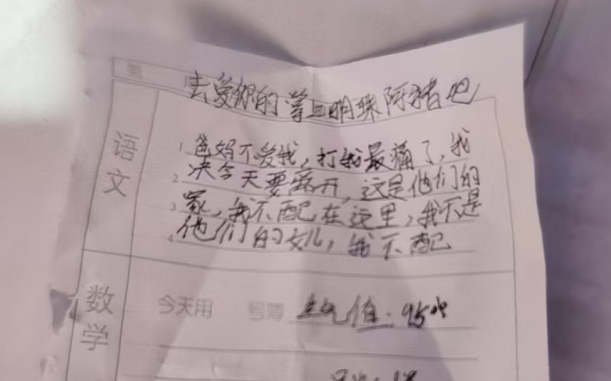 去爱你的掌上明珠阿猪吧
语文
1 爸妈不爱我，打我最痛了，我
2 决今天要离开，这是他们的
3 家，我不配在这里，我不是
4 他们的女儿，我不配
数学
今天用 号簿 生气值：95%